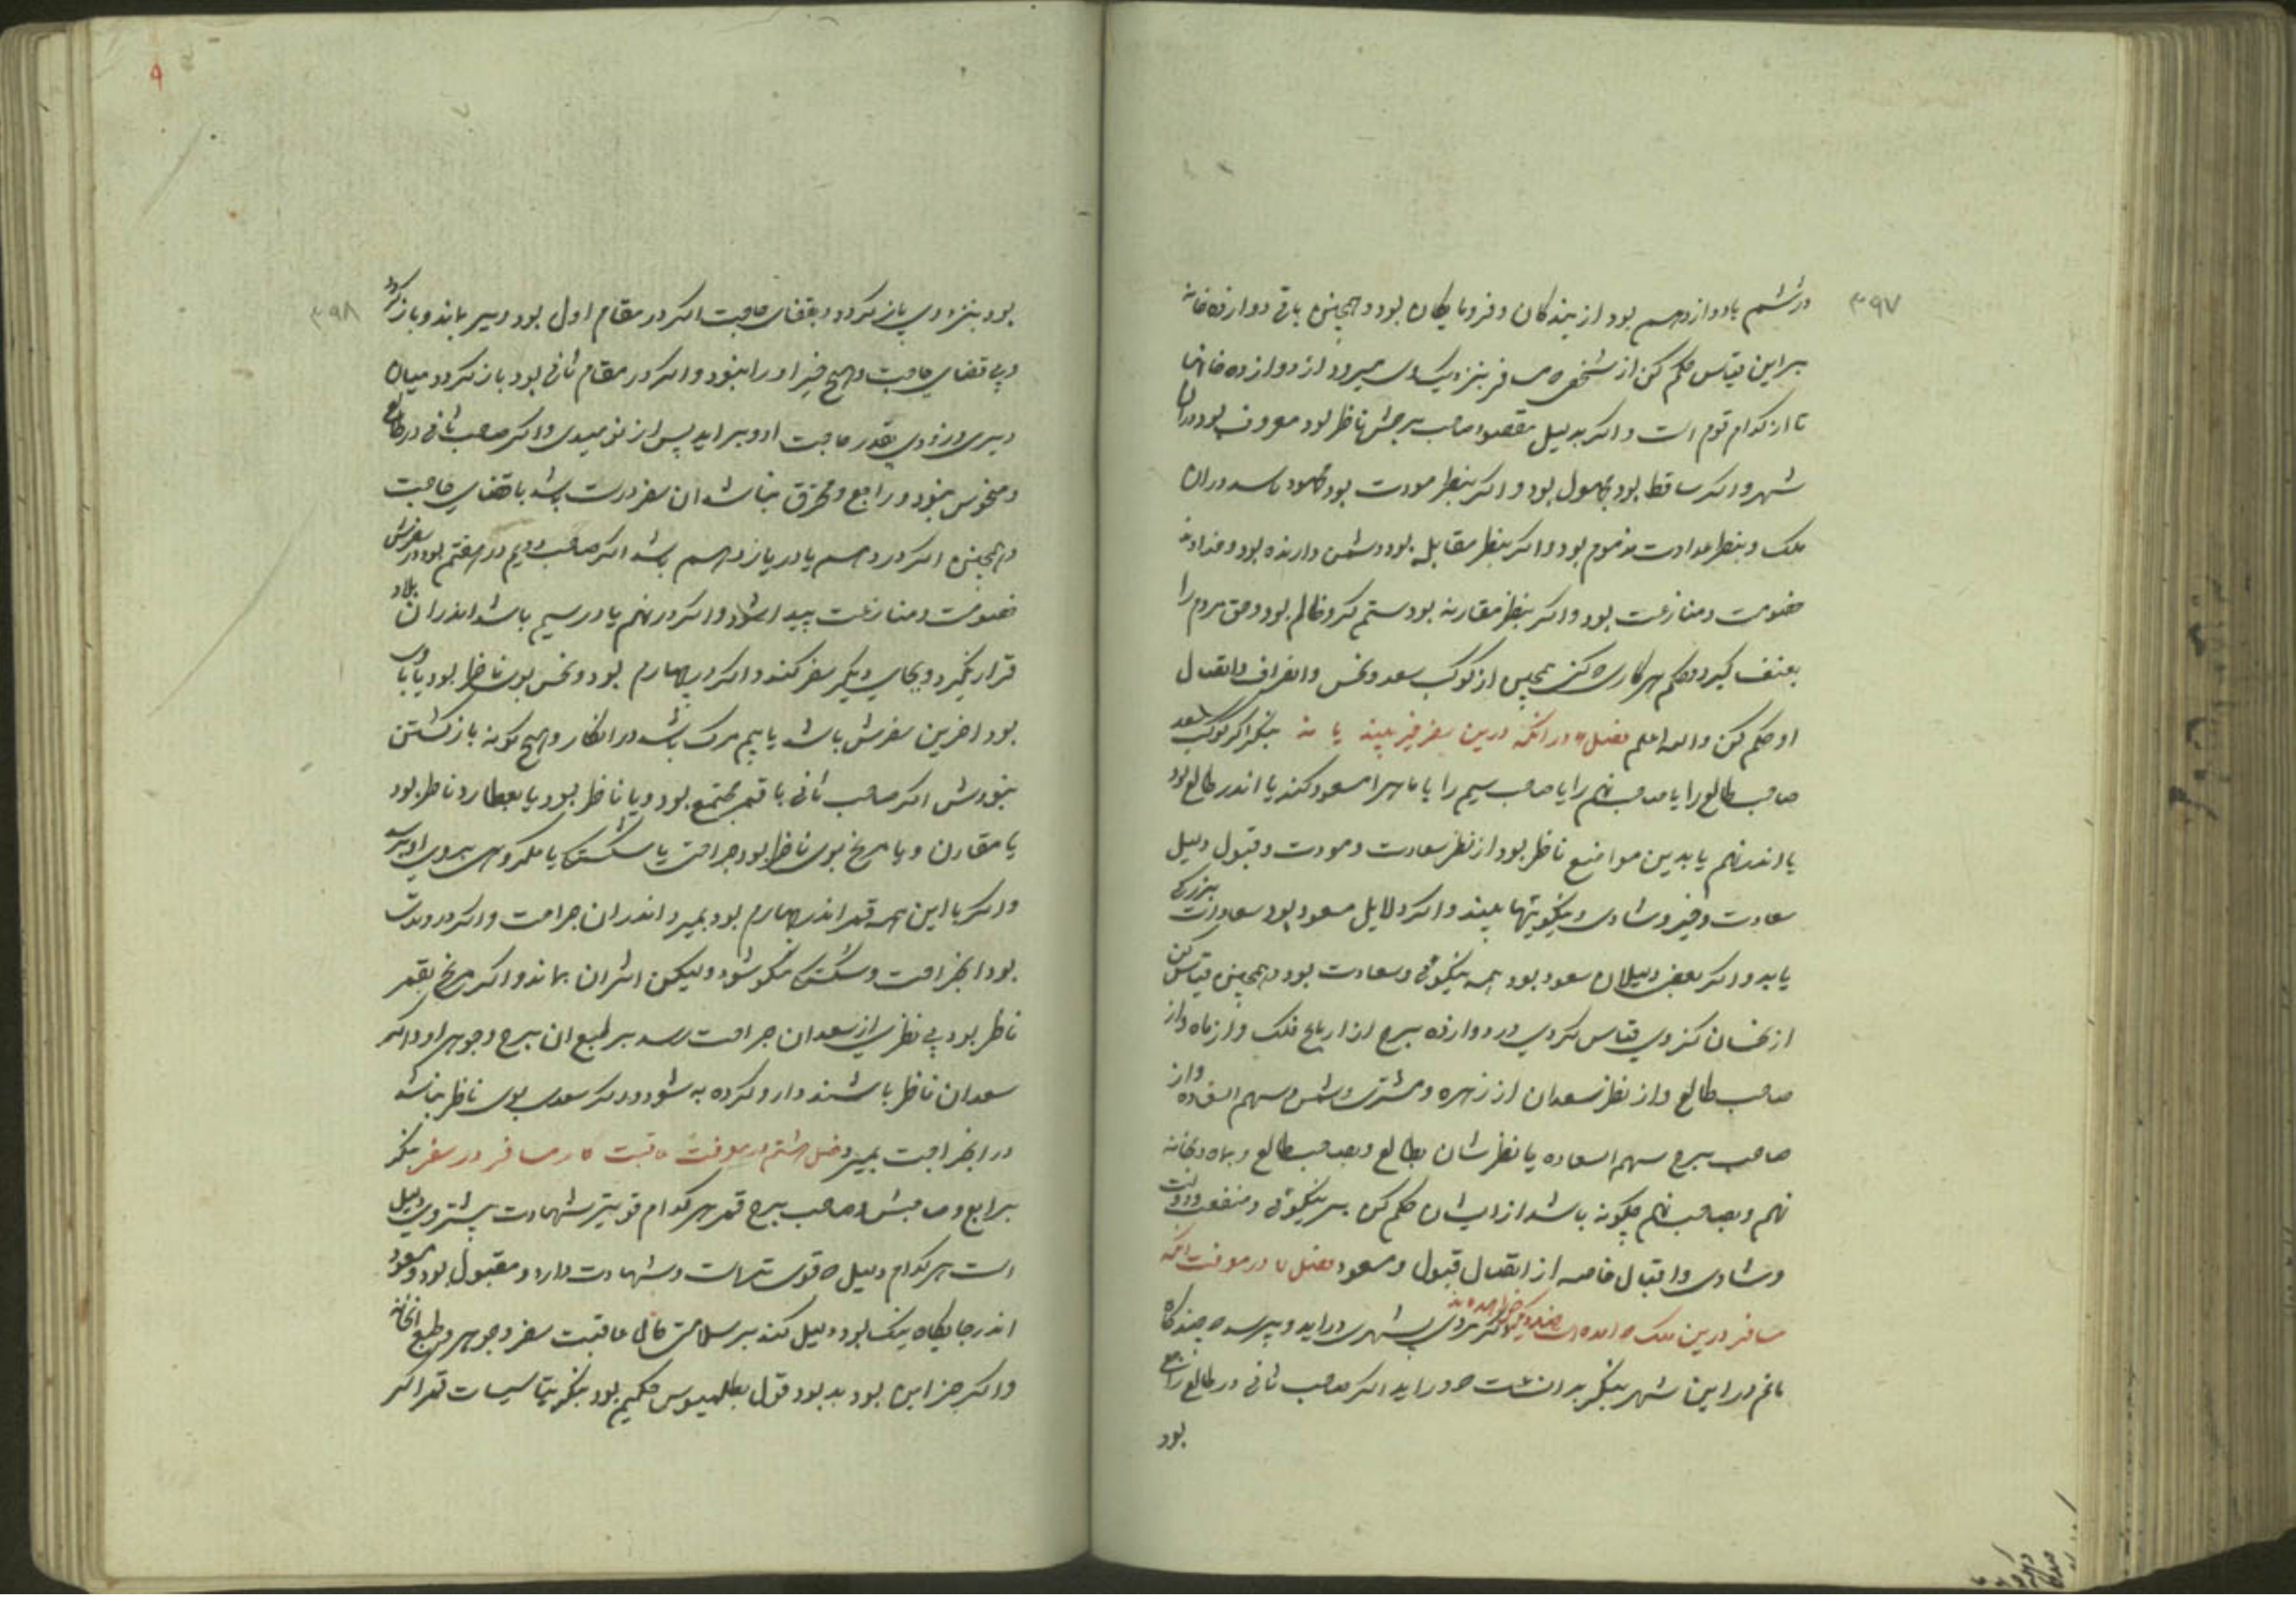 ۳۹۷
در ششم یا دوازدهم بود از بندگان و فرومایگان بود و همچنین باقی دوازده خانه
بر این قیاس حکم کن از شخصی مسافر بنزدیک وی میرود از دوازده خانها
تا از کدام قوم است و اگر بدلیل مقصود صاحب برجش ناظر بود معروف بود در ان
شهر و اگر ساقط بود مجهول بود و اگر بنظر مودت بود محمود باشد در ان
ملک و بنظر عداوت مذموم بود و اگر بنظر مقابله بود دشمن دارنده بود و خداوند
خصومت و منازعت بود و اگر بنظر مقارنه بود ستم گر و ظالم بود و حق مردم را
بعنف گیرد و حکم هر کاری کنی همچنین از کوکب سعد و نحس و انصراف و اتصال
او حکم کن والله اعلم فصل ۶ در انکه درین سفر خیر بیند یا نه بنگر اگر کوکب سعد
صاحب طالع را یا صاحب نهم را یا صاحب سیم را یا ماه را مسعود کند یا اندر طالع بود
یا اندر نهم یا بدین مواضع ناظر بود از نظر سعادت و مودت و قبول دلیل
سعادت و خیر و شادی و نیکویتها بیند و اگر دلایل مسعود بود سعادت بزرگی
یابد و اگر بعضی دلیلان سعود بود همه نیکوئی و سعادت بود و همچنین قیاس کن
از نحسان کز وی قیاس کردی در دوازده برج از ارباع فلک و از ماه و از
صاحب طالع و از نظر سعدان از زهره و مشتری و شمس و سهم السعاده و از
صاحب برج سهم السعاده یا نظرشان بطالع و بصاحب طالع و بماه و بخانه
نهم و بصاحب نهم چگونه باشد از ایشان حکم کن بر نیکوئی و منفعت و دولت
و شادی و اقبال خاصه از اتصال قبول و سعود فصل ۷ در معرفت انکه
مسافر درین ملک امده است چند وقت خواهد ماند اگر مردی بشهری دراید و پرسد چندگاه
مانم در این شهر بنگر بدان ساعت دراید اگر صاحب ثانی در طالع راجع
بود
۳۹۸
بود بزودی باز گردد و بقضای حاجت اگر در مقام اول بود دیر بماند و باز گردد
و بی قضای حاجت و هیچ خیر او را نبود و اگر در مقام ثانی بود باز گردد میان
دیری و زودی بقدر حاجت او و براید پس از نومیدی و اگر صاحب ثانی در طالع
و منحوس نبود و راجع و محترق نباشد ان سفر درست باشد با قضای حاجت
و همچنین اگر در دهم یا در یازدهم باشد اگر صاحب دویم در هفتم بود در سفرش
خصومت و منازعت پیدا شود و اگر در نهم یا در سیم باشد اندر ان بلاد
قرار نگیرد و بجای دیگر سفر کند و اگر در چهارم بود و نحس بوی ناظر بود یا با وی
بود اخرین سفرش باشد یا بیم مرگ باشد در انکار و هیچ گونه باز گشتن
نبودش اگر صاحب ثانی با قمر مجتمع بود و یا ناظر بود یا بعطارد ناظر بود
یا مقارن و یا مریخ بوی ناظر بود جراحت یا شکستگی یا مکروهی بروی او رسد
و اگر با این همه قمر اندر چهارم بود بمیرد اندر ان جراحت و اگر در وتدش
بود انجراحت و شکستگی نیکو شود ولیکن اثر ان بماند و اگر مریخ بقمر
ناظر بود بی نظری از سعدان جراحت رسد بر طبع ان برج و جوهر او و اگر
سعدان ناظر باشند دارو کرده به شود و اگر سعدی بوی ناظر نباشد
در انجراحت بمیرد فصل هشتم در معرفت عاقبت کار مسافر در سفر بنگر
برابع و صاحبش و صاحب برج قمر هر کدام قویتر شهادت بیشتر وی دلیل
است هر کدام دلیل قوی تر است و شهادت دارد و مقبول بود و مسعود
اندر جایگاه نیک بود دلیل کند بر سلامتی عاقبت سفر و جوهر و طبع انخانه
و اگر جز این بود بد بود قول بطلمیوس حکیم بود بنگر بتاسیسات قمر اگر